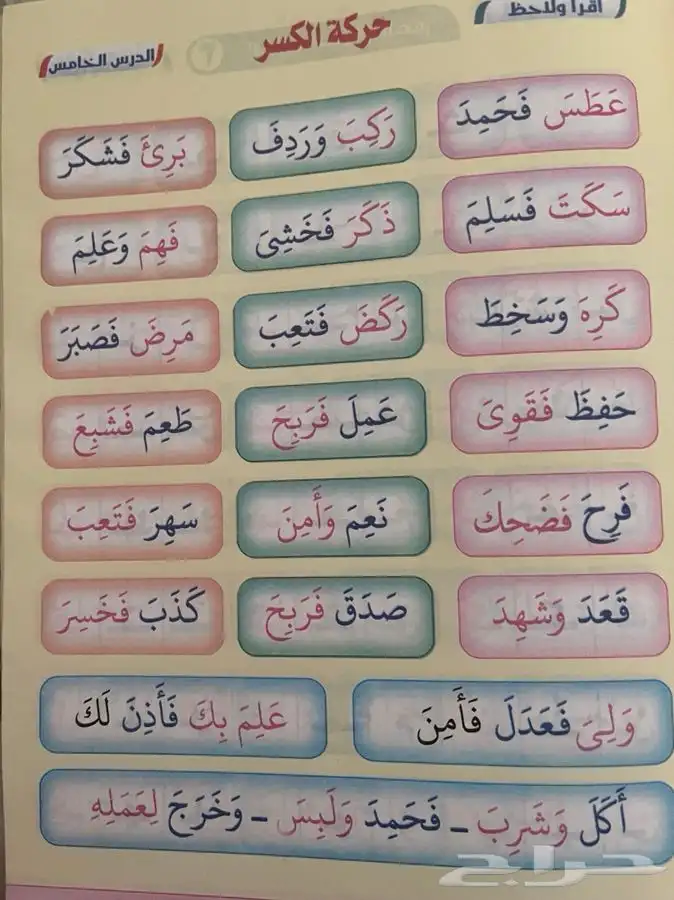 اقرأ ولاحظ
حركة الكسر
الدرس الخامس
عَطَسَ فَحَمِدَ
رَكِبَ وَرَدِفَ
بَرِئَ فَشَكَرَ
سَكَتَ فَسَلِمَ
ذَكَرَ فَخَشِىَ
فَهِمَ وَعَلِمَ
كَرِهَ وَسَخِطَ
رَكَضَ فَتَعِبَ
مَرِضَ فَصَبَرَ
حَفِظَ فَقَوِىَ
عَمِلَ فَرَبِحَ
طَعِمَ فَشَبِعَ
فَرِحَ فَضَحِكَ
نَعِمَ وَأَمِنَ
سَهِرَ فَتَعِبَ
قَعَدَ وَشَهِدَ
صَدَقَ فَرَبِحَ
كَذَبَ فَخَسِرَ
وَلِىَ فَعَدَلَ فَأَمِنَ
عَلِمَ بِكَ فَأَذِنَ لَكَ
أَكَلَ وَشَرِبَ - فَحَمِدَ وَلَبِسَ - وَخَرَجَ لِعَمَلِهِ
حراج